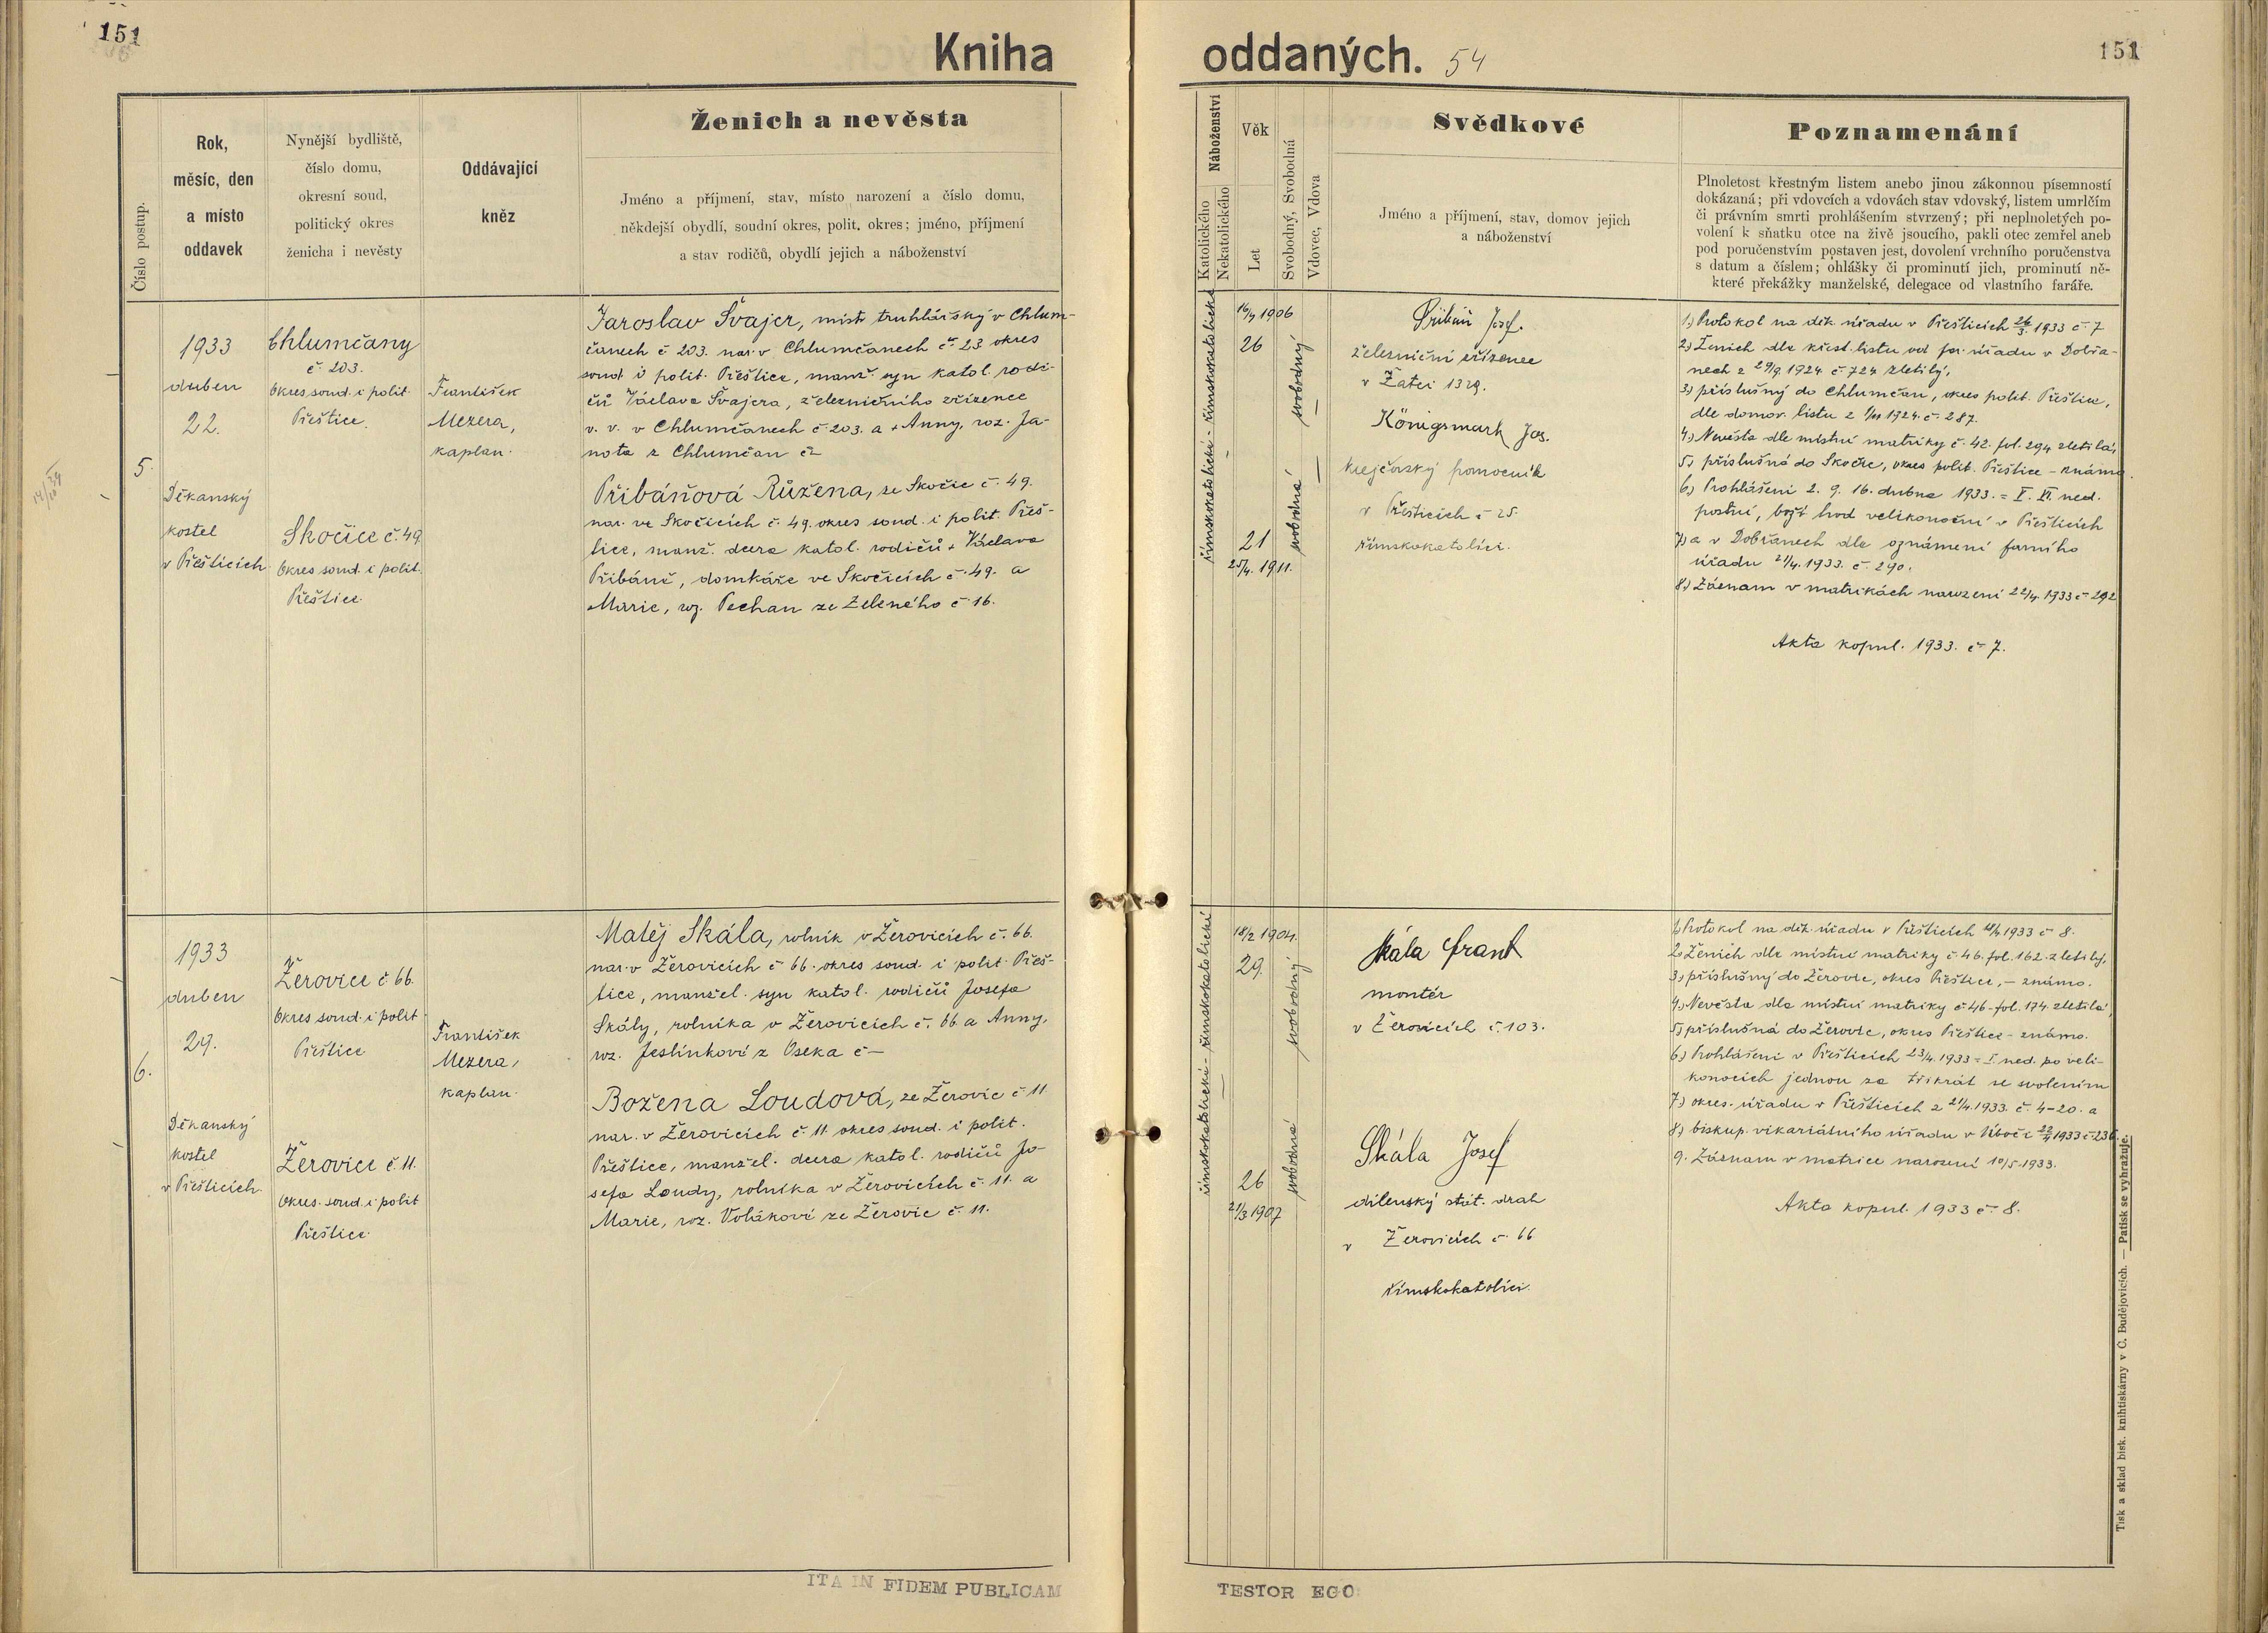 151
Kniha
oddaných. 54
151
Číslo postup.
Rok,
měsíc, den
a místo
oddavek
Nynější bydliště,
číslo domu,
okresní soud,
politický okres
ženicha i nevěsty
Oddávající
kněz
Ženich a nevěsta
Jméno a příjmení, stav, místo narození a číslo domu,
někdejší obydlí, soudní okres, polit. okres; jméno, příjmení
a stav rodičů, obydlí jejich a náboženství
Náboženství
Katolického
Nekatolického
Věk
Let
Svobodný, Svobodná
Vdovec, Vdova
Svědkové
Jméno a příjmení, stav, domov jejich
a náboženství
Poznamenání
Plnoletost křestným listem anebo jinou zákonnou písemností
dokázaná; při vdovcích a vdovách stav vdovský, listem umrlčím
či právním smrti prohlášením stvrzený; při neplnoletých po-
volení k sňatku otce na živě jsoucího, pakli otec zemřel aneb
pod poručenstvím postaven jest, dovolení vrchního poručenstva
s datum a číslem; ohlášky či prominutí jich, prominutí ně-
které překážky manželské, delegace od vlastního faráře.
5.
1933
duben
22.
Děkanský
kostel
v Přešticích
Chlumčany
č. 203.
Okres soud. i polit.
Přeštice.
Skočice č. 49
Okres soud. i polit.
Přeštice.
František
Mezera,
kaplan.
Jaroslav Švajcr, mistr truhlářský v Chlum-
čanech č 203. nar. v Chlumčanech č. 23 okres
soud. i polit. Přeštice, manž. syn katol. rodi-
čů Václava Švajcra, železničního zřízence
v. v. v Chlumčanech č. 203. a + Anny, roz. Ja-
nota z Chlumčan č
Přibáňová Růžena, ze Skočic č. 49.
nar. ve Skočicích č. 49. okres soud. i polit. Přeš-
tice, manž. dcera katol. rodičů + Václava
Přibáně, domkáře ve Skočicích č. 49. a
Marie, roz. Pechan ze Zeleného č 16.
římskokatolické - římskokatolické
1906
26
21
25/4. 1911.
svobodný
svobodná
Přibáň Josef.
železniční zřízenec
v Žatci 1329.
Königsmark Jos.
krejčovský pomocník
v Přešticích č 25.
římskokatolíci.
1.) Protokol na děk. úřadu v Přešticích 26/3. 1933 č. 7
2.) Ženich dle křest. listu od far. úřadu v Dobřa-
nech z 29/9. 1924 č. 724 zletilý,
3.) příslušný do Chlumčan, okres polit. Přeštice,
dle domov. listu z 1924. č. 287.
4.) Nevěsta dle místní matriky č. 42. fol. 294 zletilá,
5.) příslušná do Skočic, okres polit. Přeštice - známo.
6.) Prohlášení 2. 9. 16. dubna 1933. = V. VI. ned.
postní, boží hod velikonoční v Přešticích
7.) a v Dobřanech dle oznámení farního
úřadu 21/4. 1933. č. 290.
8.) Záznam v matrikách narození 22/4. 1933 č 292
Akta kopul. 1933. č 7.
6.
1933
duben
29.
Děkanský
kostel
v Přešticích.
Žerovice č 66.
Okres soud. i polit.
Přeštice
Žerovice č. 11.
Okres. soud. i polit
Přeštice.
František
Mezera,
kaplan.
Matěj Skála, rolník v Žerovicích č. 66.
nar. v Žerovicích č 66. okres soud. i polit. Přeš-
tice, manžel. syn katol. rodičů Josefa
Skály, rolníka v Žerovicích č. 66 a Anny,
roz. Jeslínkové z Oseka č —
Božena Loudová, ze Žerovic č 11
nar. v Žerovicích č. 11 okres soud. i polit.
Přeštice, manžel. dcera katol. rodičů Jo-
sefa Loudy, rolníka v Žerovicích č. 11. a
Marie, roz. Volákové ze Žerovic č. 11.
římskokatolické - římskokatolické
18/2 1904.
29.
26
21/3 1907
svobodný
svobodná
Skála Frant
montér
v Žerovicích č. 103.
Skála Josef
dílenský stát. drah
v Žerovicích č. 66
římskokatolíci.
1.) Protokol na děk. úřadu v Přešticích 1933 č 8.
2.) Ženich dle místní matriky č. 46. fol. 162. zletilý,
3.) příslušný do Žerovic, okres Přeštice, – známo.
4.) Nevěsta dle místní matriky č 46 - fol. 174. zletilá,
5.) příslušná do Žerovic, okres Přeštice - známo.
6.) Prohlášení v Přešticích 23/4. 1933 = I. ned. po veli-
konocích jednou za třikrát se svolením
7.) okres. úřadu v Přešticích z 21/4. 1933. č. 4-20. a
8.) biskup. vikariátního úřadu v 22/4 1933 č 236.
9. Záznam v matrice narození 10/5. 1933.
Akta kopul. 1933 č. 8.
Tisk a sklad bisk. knihtiskárny v Č. Budějovicích. — Patisk se vyhražuje.
ITA IN FIDEM PUBLICAM
TESTOR EGO: